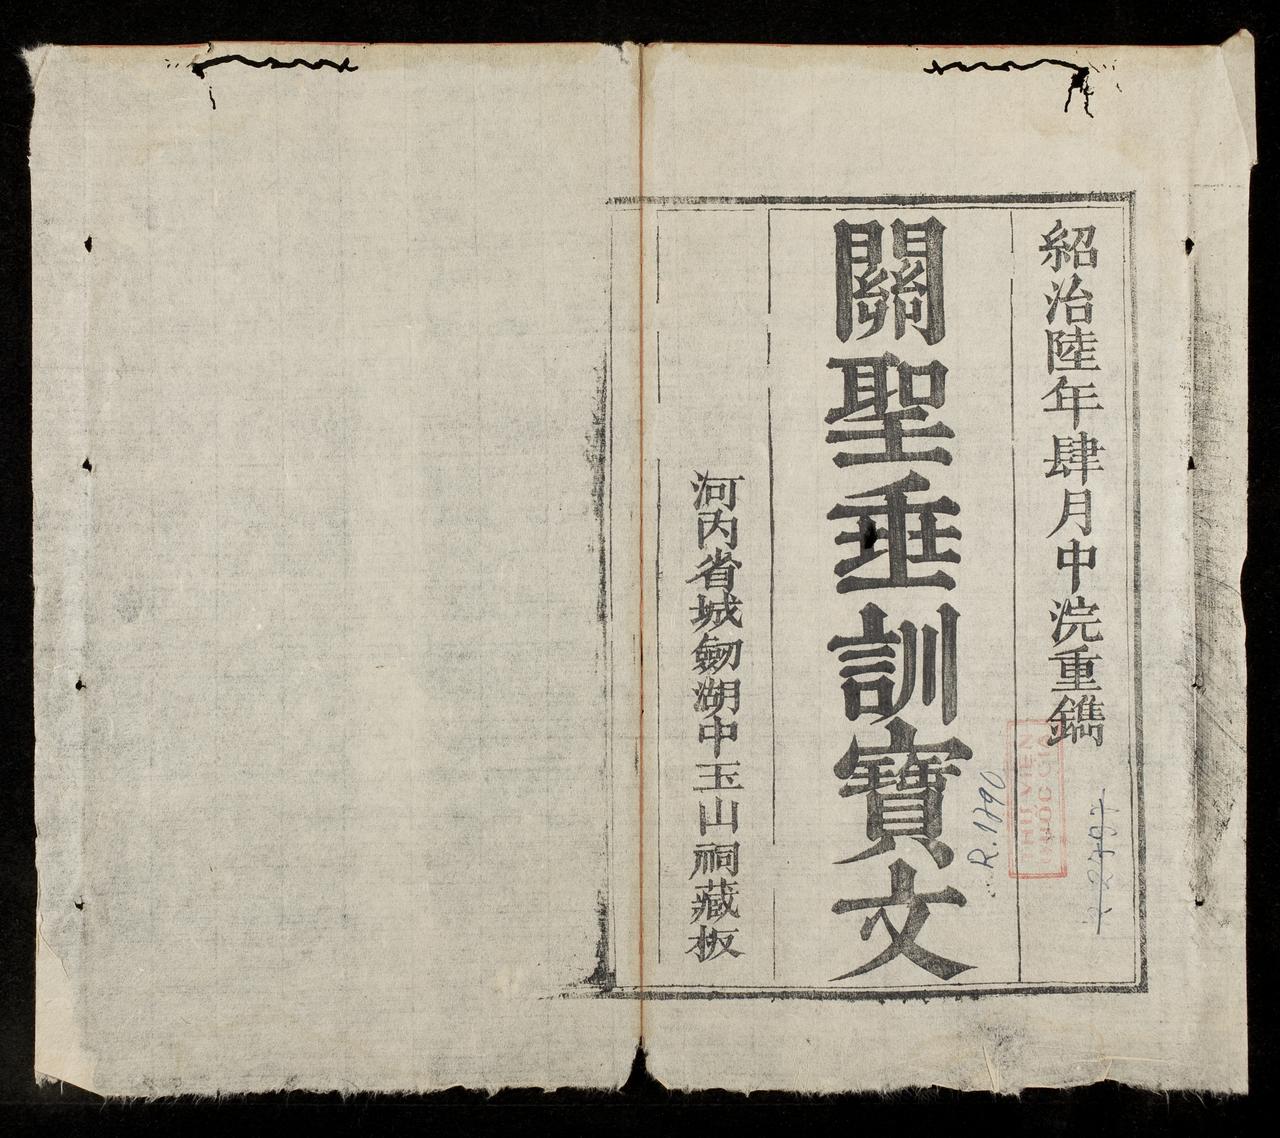 紹治陸年肆月中浣重鐫
關聖垂訓寶文
河内省城劒湖中玉山祠藏板
R.1790
THƯ VIỆN
QUỐC GIA